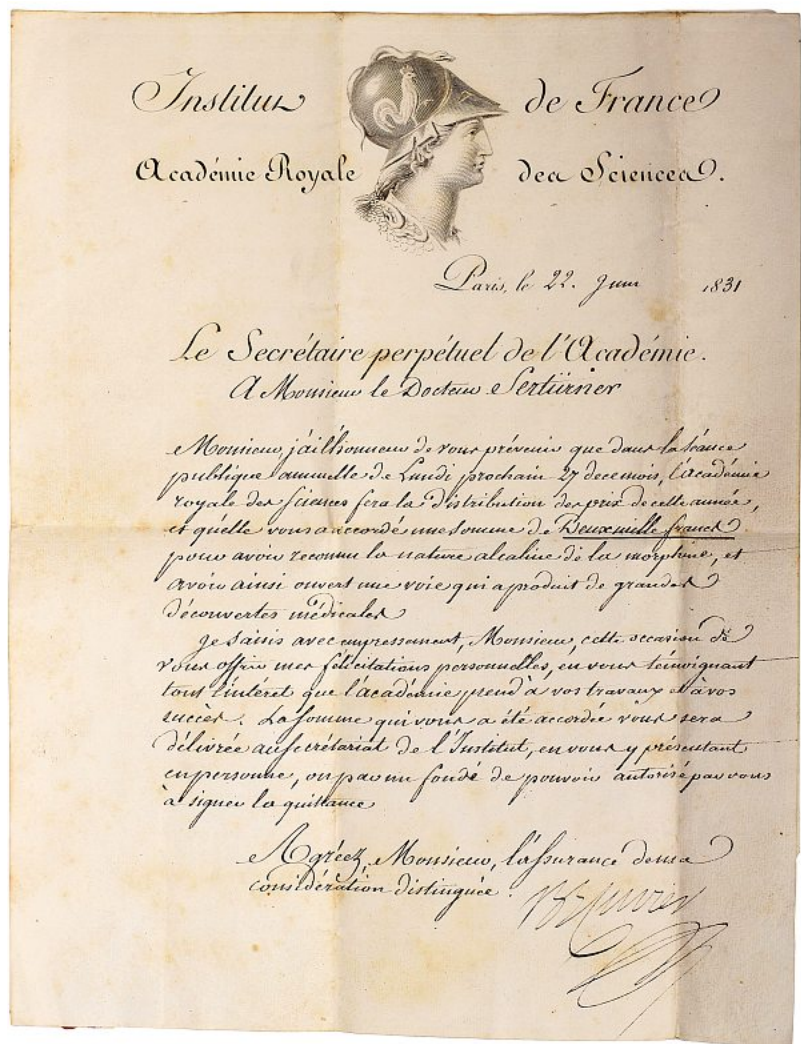 Institut de France
Académie Royale des Sciences.
Paris, le 22. Juin 1831
Le Secrétaire perpétuel de l'Académie.
A Monsieur le Docteur Sertürner
Monsieur, j'ai l'honneur de vous prévenir que dans la séance
publique annuelle de Lundi prochain 27 de ce mois, l'académie
royale des sciences fera la distribution des prix de cette année,
et qu'elle vous a accordé une somme de Deux mille francs
pour avoir reconnu la nature alcaline de la morphine, et
avoir ainsi ouvert une voie qui a produit de grandes
découvertes médicales
Je saisis avec empressement, Monsieur, cette occasion de
vous offrir mes félicitations personnelles, en vous témoignant
tout l'intéret que l'académie prend à vos travaux et à vos
succès. La somme qui vous a été accordée vous sera
délivrée au secrétariat de l'Institut, en vous y présentant
en personne, ou par un fondé de pouvoir autorisé par vous
à signer la quittance
Agréez, Monsieur, l'assurance de ma
considération distinguée.
Bn Cuvier